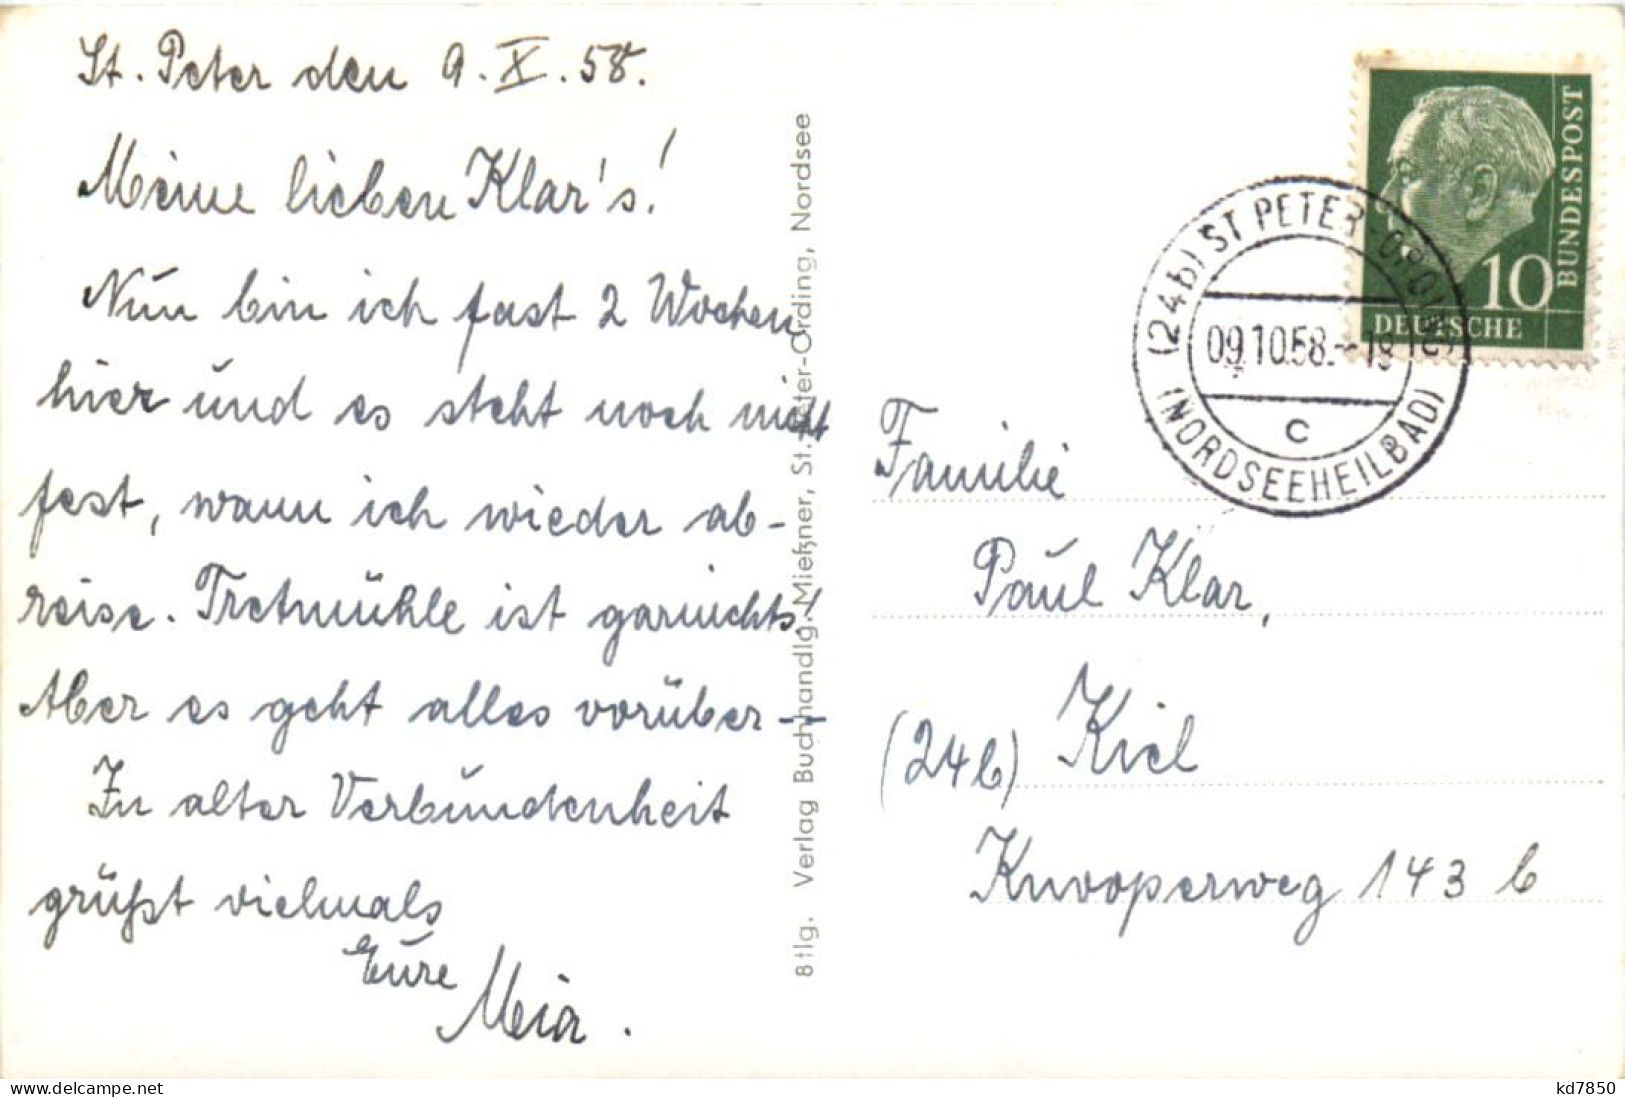 St. Peter den 9. X. 58.
Meine lieben Klar's!
Nun bin ich fast 2 Wochen
hier und es steht noch nicht
fest, wann ich wieder ab-
reise. Tretmühle ist garnichts!
Aber es geht alles vorüber -
In alter Verbundenheit
grüßt vielmals
Eure
8tlg. Verlag Buchhandlg. Mießner, St. Peter-Ording, Nordsee
DEUTSCHE
BUNDESPOST
10
(24b) ST PETER-ORDING
09.10.58.-18
c
(NORDSEEHEILBAD)
Familie
Paul Klar,
(24b) Kiel
Knooperweg 143 b
www.delcampe.net
kd7850